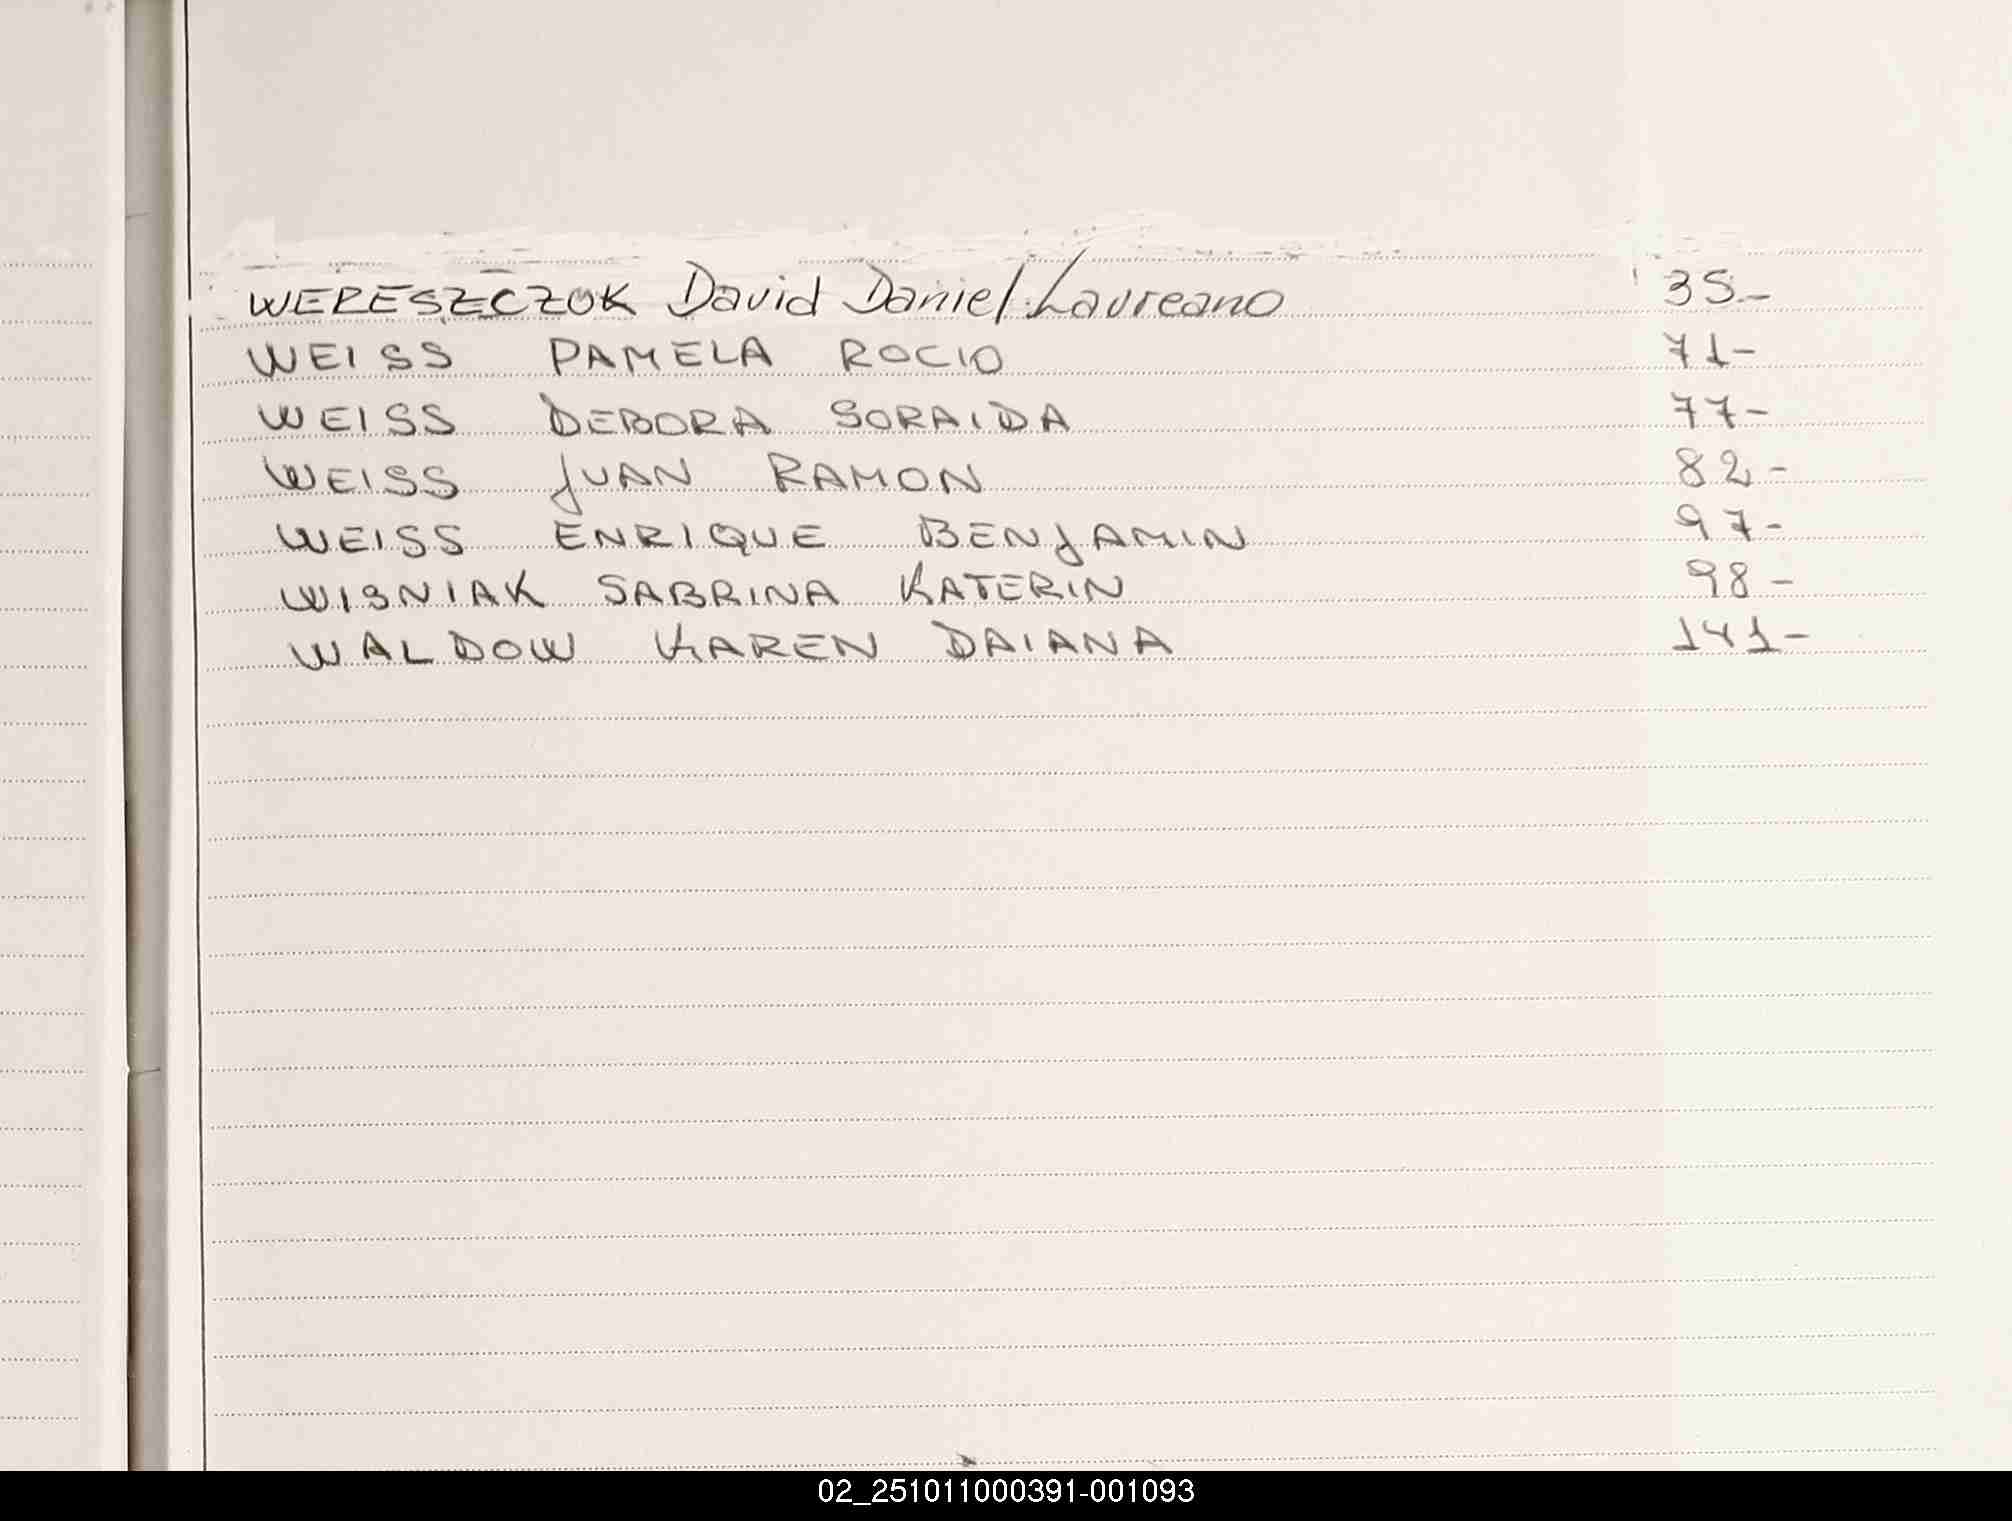 WERESZCZUK David Daniel Laureano 35-
WEISS PAMELA ROCIO 71-
WEISS DEBORA SORAIDA 77-
WEISS JUAN RAMON 82-
WEISS ENRIQUE BENJAMIN 97-
WISNIAK SABRINA KATERIN 98-
WALDOW KAREN DAIANA 141-
02_251011000391-001093